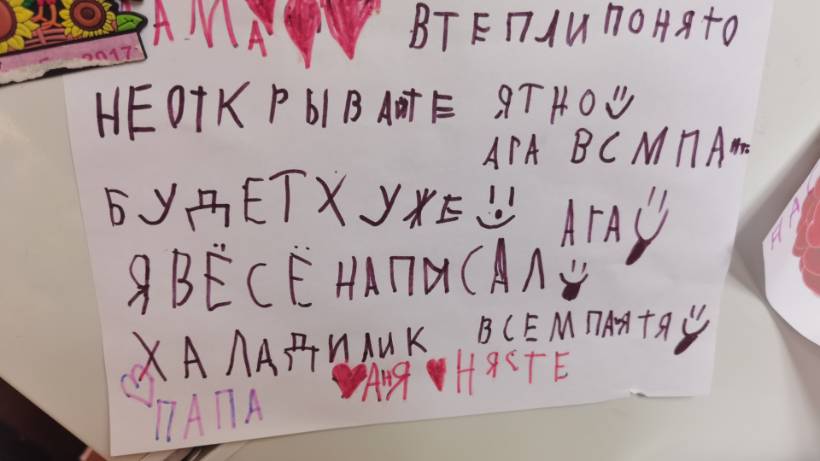 МАМА
2017
ВТЕПЛИ ПОНЯТО
НЕОТКРЫВАЙТЕ
ЯТНО
АГА ВСМПА
БУДЕТ ХУЖЕ
АГА
Я ВЁСЁ НАПЫСАЛ
ХАЛАДИЛИК
ВСЕМПАЯТЯ
АНЯ НЯСТЕ
ПАПА